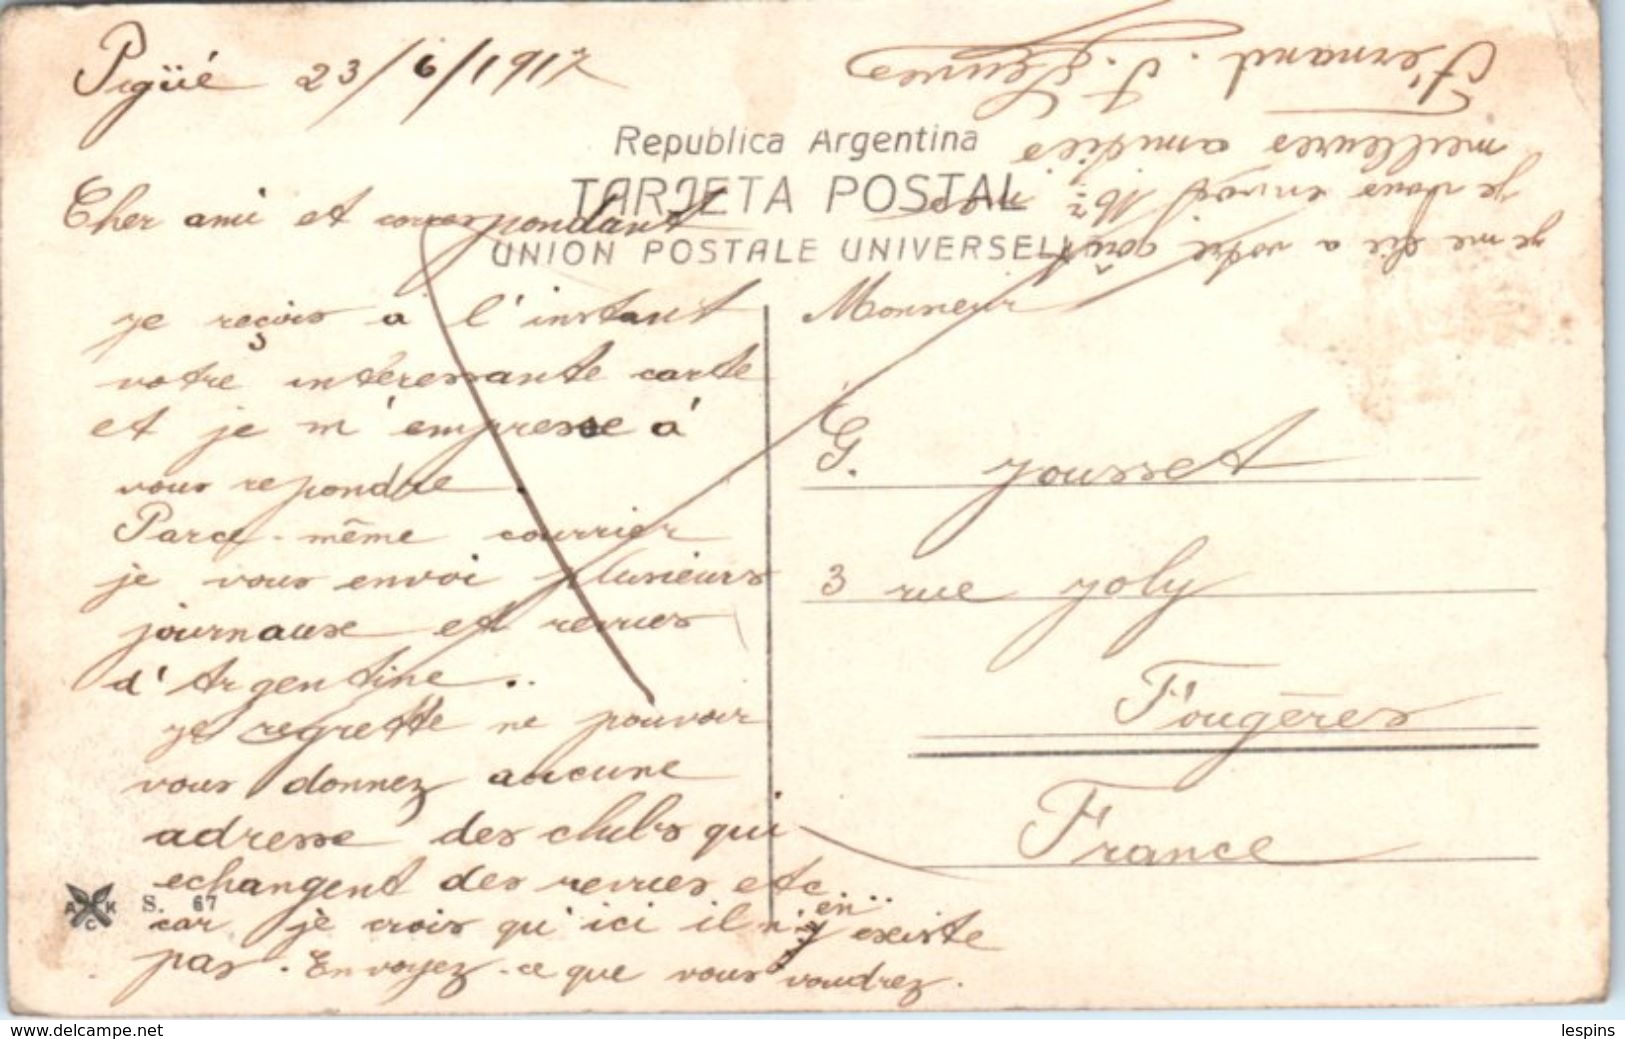 Pigüé 23/6/1917
Republica Argentina
TARJETA POSTAL
UNION POSTALE UNIVERSELLE
Cher ami et correspondant
je reçois à l'instant
votre intéressante carte
et je m'empresse à
vous repondre.
Parce-même courrier
je vous envoi plusieurs
journause et revues
d'Argentine..
je regrette ne pouvoir
vous donnez aucune
adresse des clubs qui
echangent des revues etc...
car je crois qu'ici il n'y en existe
pas. Envoyez-ce que vous voudrez.
je me fie a votre goût
je vous envoi
meilleures amitiés
Fernand. J.
Monsieur
G. Jousset
3 rue Joly
Fougères
France
A C K
S. 67
www.delcampe.net
lespins